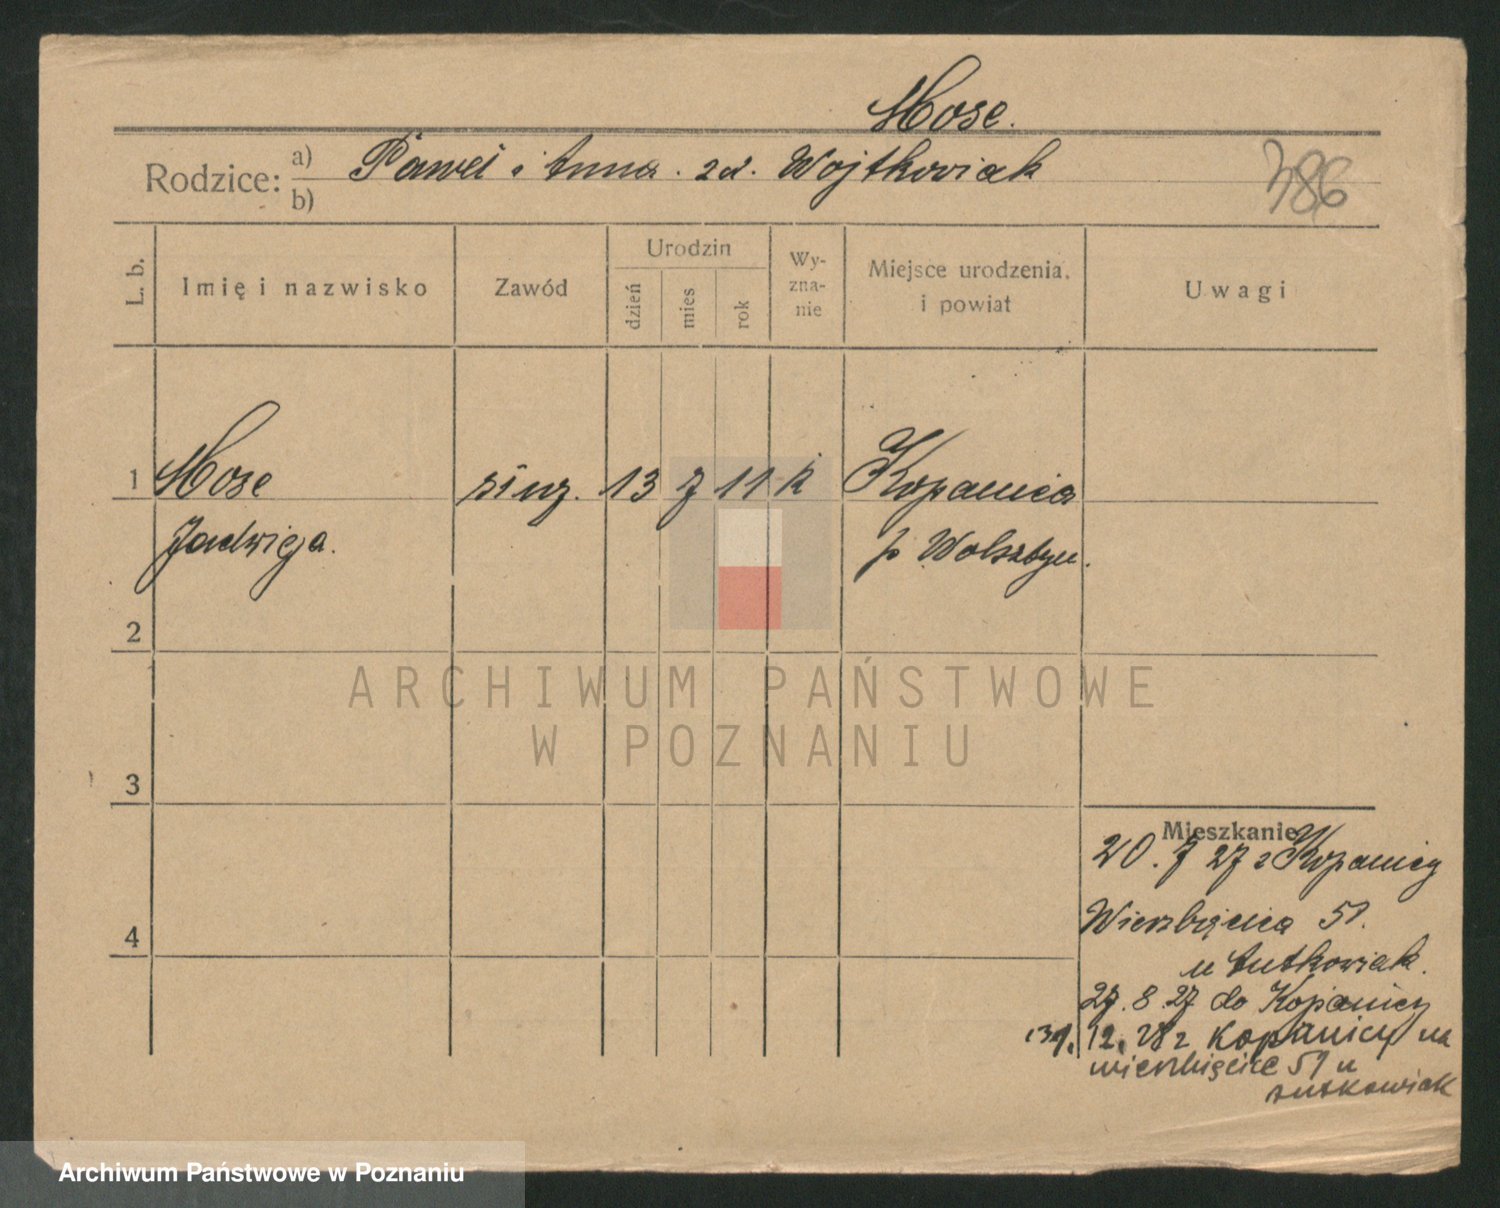 Mose.
Rodzice: a) Paweł i Anna . zd. Wojtkowiak
b)
386
L. b.
Imię i nazwisko
Zawód
Urodzin
dzień
mies
rok
Wy-
zna-
nie
Miejsce urodzenia,
i powiat
Uwagi
1 Mose służ. 13 7 11 k Kopanica
Jadwiga. p Wolsztyn.
2
3
4
Mieszkanie
20. 7 27 z Kopanicy
Wierzbięcice 51.
u
27. 8 27 do Kopanicy
12. 28 z Kopanicy na
wierzbięcice 51 u
ARCHIWUM PAŃSTWOWE
W POZNANIU
Archiwum Państwowe w Poznaniu